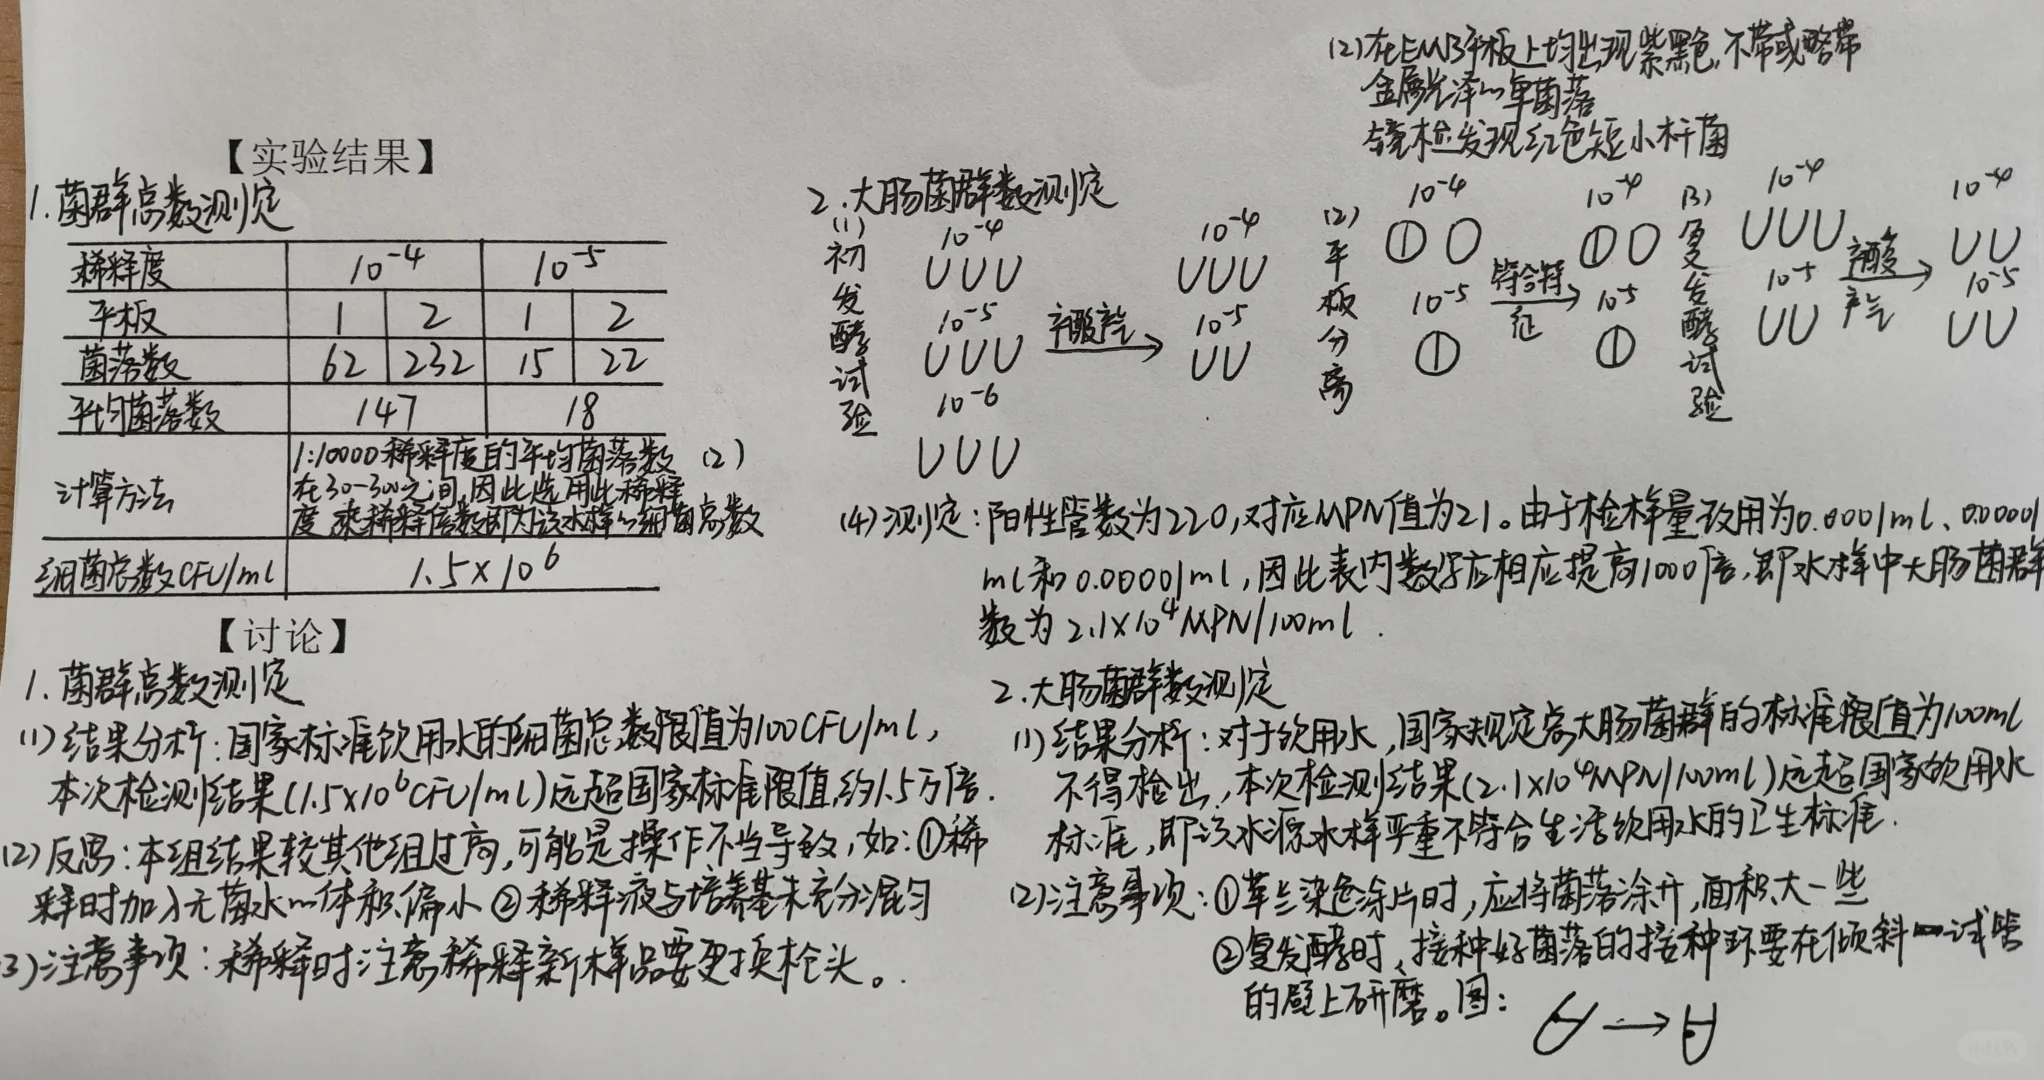 【实验结果】
1.菌群总数测定
稀释度 10⁻⁴ 10⁻⁵
平板 1 2 1 2
菌落数 62 232 15 22
平均菌落数 147 18
计算方法 1:10000稀释度的平均菌落数
在30-300之间,因此选用此稀释
度,乘稀释倍数即为该水样的细菌总数
细菌总数CFU/ml 1.5×10⁶
(2)
2.大肠菌群数测定
(1)初发酵试验
10⁻⁴
10⁻⁵
10⁻⁶
产酸产气
10⁻⁴
10⁻⁵
(2)在EMB平板上均出现紫黑色,不带或略带
金属光泽的单菌落
镜检发现红色短小杆菌
(2)平板分离
10⁻⁴
10⁻⁵
符合特征
10⁻⁴
10⁻⁵
(3)复发酵试验
10⁻⁴
10⁻⁵
产酸产气
10⁻⁴
10⁻⁵
(4)测定:阳性管数为220,对应MPN值为21。由于检样量改用为0.0001ml、0.00001
ml和0.00001ml,因此表内数字应相应提高1000倍,即水样中大肠菌群
数为2.1×10⁴MPN/100ml.
【讨论】
1.菌群总数测定
(1)结果分析:国家标准饮用水的细菌总数限值为100CFU/ml,
本次检测结果(1.5×10⁶CFU/ml)远超国家标准限值,约1.5万倍.
(2)反思:本组结果较其他组过高,可能是操作不当导致,如:①稀
释时加入无菌水的体积偏小②稀释液与培养基未充分混匀
(3)注意事项:稀释时注意稀释新样品要更换枪头。
2.大肠菌群数测定
(1)结果分析:对于饮用水,国家规定总大肠菌群的标准限值为100ml
不得检出,本次检测结果(2.1×10⁴MPN/100ml)远超国家饮用水
标准,即该水源水样严重不符合生活饮用水的卫生标准.
(2)注意事项:①革兰染色涂片时,应将菌落涂开,面积大一些
②复发酵时,接种好菌落的接种环要在倾斜试管
的壁上研磨。图: